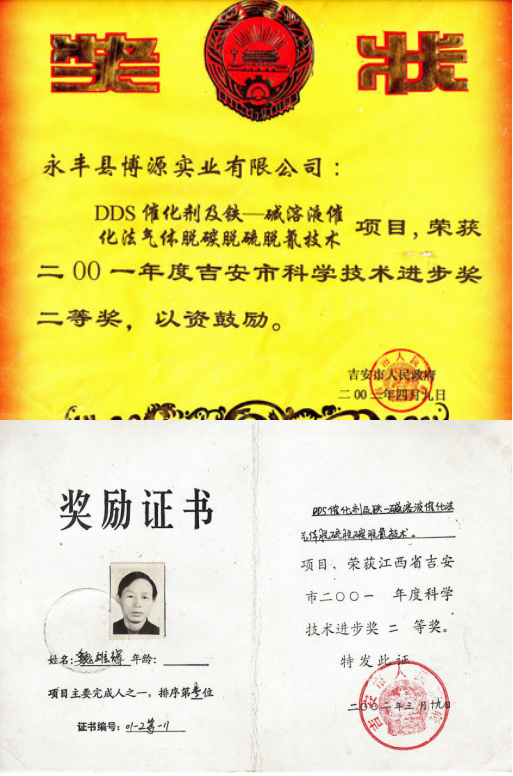 奖 状
永丰县博源实业有限公司：
DDS 催化剂及铁—碱溶液催
化法气体脱碳脱硫脱氰技术 项目，荣获
二00一年度吉安市科学技术进步奖
二等奖，以资鼓励。
吉安市人民政府
二00二年四月九日
奖励证书
姓名：魏雄辉 年龄：
项目主要完成人之一，排序第 位
证书编号：01-2等-11
DDS催化剂及铁—碱溶液催化法
气体脱硫脱碳脱氰技术。
项目，荣获江西省吉安
市二〇〇一 年度科学
技术进步奖 二 等奖。
特发此证
二〇〇二年三月十九日